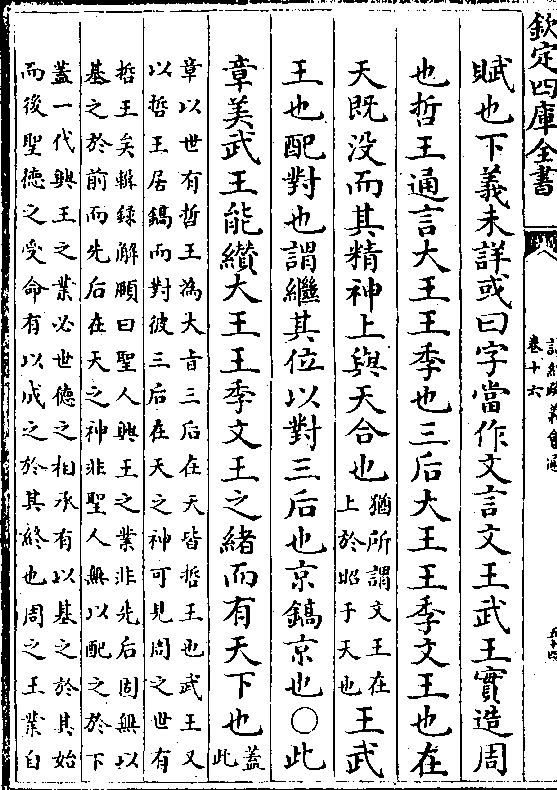 欽定四庫全書
卷十六
賦也下義未詳或曰字當作文言文王武王實造周
也哲王通言大王王季也三后大王王季文王也在
天既没而其精神上與天合也猶所謂文王在
上於昭于天也王武
王也配對也謂繼其位以對三后也京鎬京也○此
章美武王能纘大王王季文王之緒而有天下也蓋
此
章以世有哲王為大旨三后在天皆哲王也武王又
以哲王居鎬而對彼三后在天之神可見周之世有
哲王矣輯録解頤曰聖人興王之業非先后固無以
基之於前而先后在天之神非聖人無以配之於下
蓋一代興王之業必世德之相承有以基之於其始
而後聖德之受命有以成之於其終也周之王業自